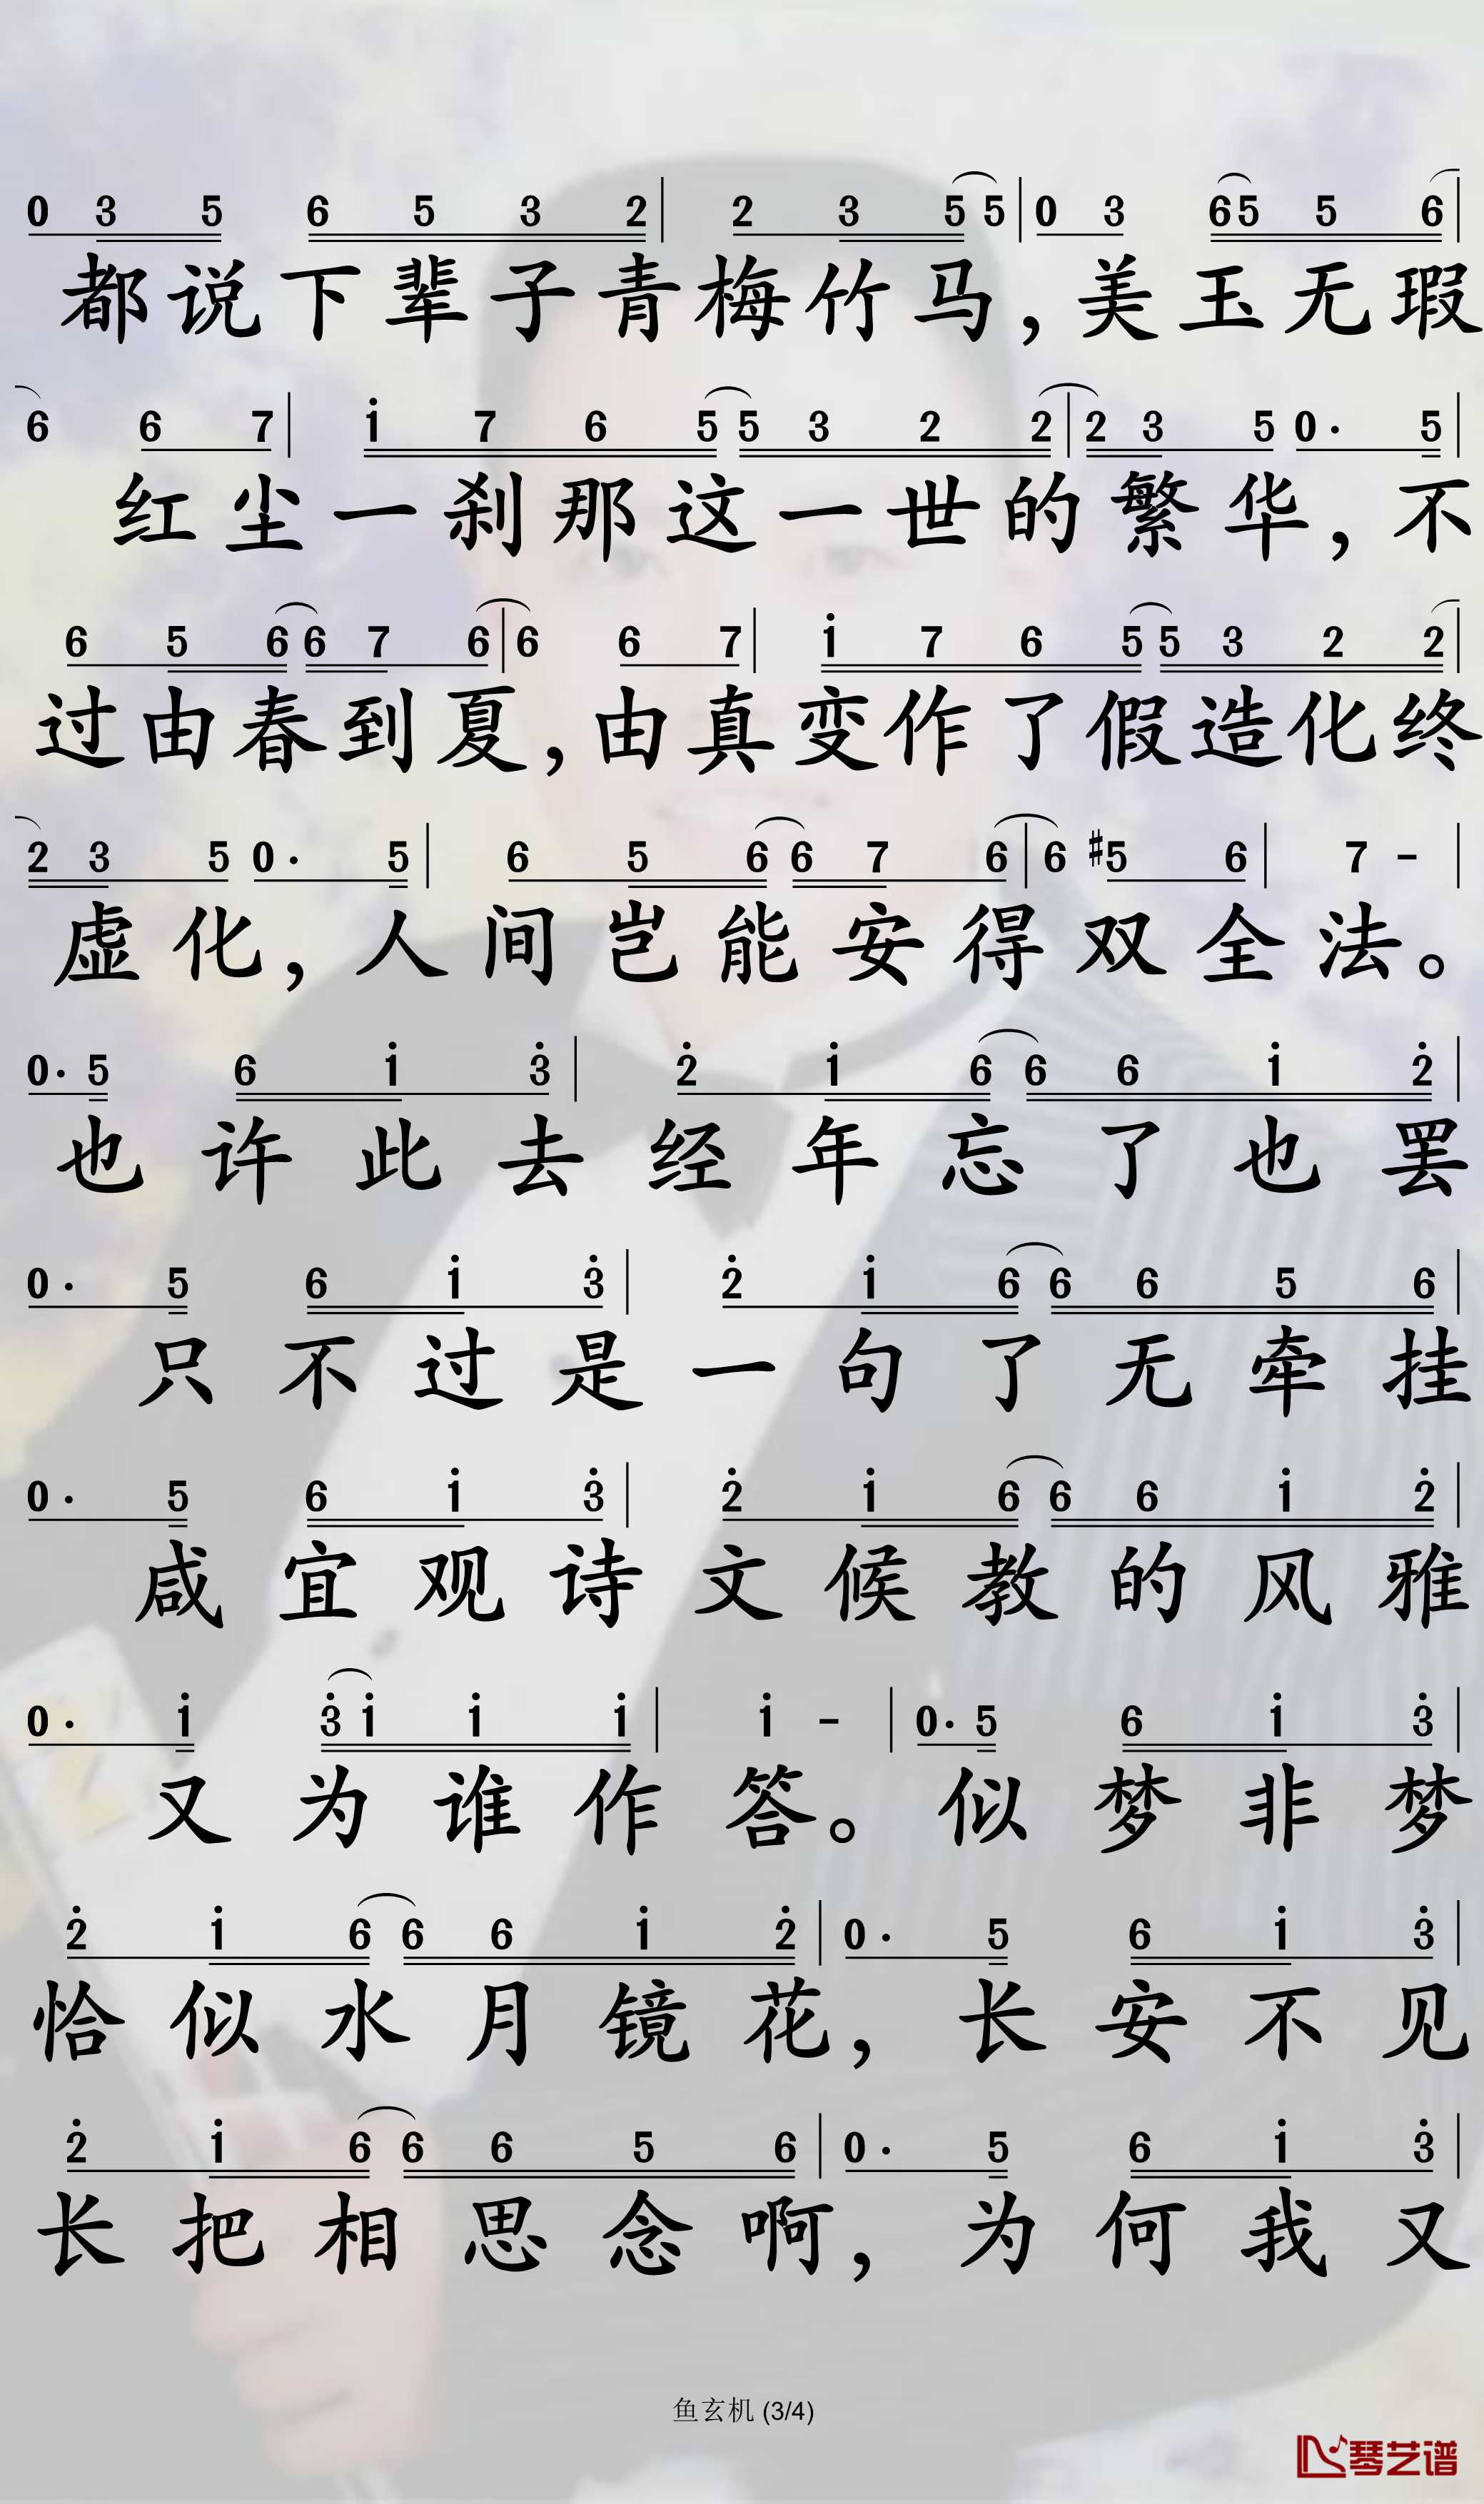 0 3 5 6 5 3 2 | 2 3 5 5 | 0 3 6 5 5 6 |
都说下辈子青梅竹马，美玉无瑕
6 6 7 | i 7 6 5 5 3 2 2 | 2 3 5 0· 5 |
红尘一刹那这一世的繁华，不
6 5 6 6 7 6 | 6 6 7 | i 7 6 5 5 3 2 2 |
过由春到夏，由真变作了假造化终
2 3 5 0· 5 | 6 5 6 6 7 6 | 6 #5 6 | 7 - |
虚化，人间岂能安得双全法。
0· 5 6 i 3̇ | 2̇ i 6 6 6 i 2̇ |
也许此去经年忘了也罢
0· 5 6 i 3̇ | 2̇ i 6 6 6 5 6 |
只不过是一句了无牵挂
0· 5 6 i 3̇ | 2̇ i 6 6 6 i 2̇ |
咸宜观诗文候教的风雅
0· i 3̇ i i i | i - | 0· 5 6 i 3̇ |
又为谁作答。似梦非梦
2̇ i 6 6 6 i 2̇ | 0· 5 6 i 3̇ |
恰似水月镜花，长安不见
2̇ i 6 6 6 5 6 | 0· 5 6 i 3̇ |
长把相思念啊，为何我又
鱼玄机 (3/4)
琴艺谱